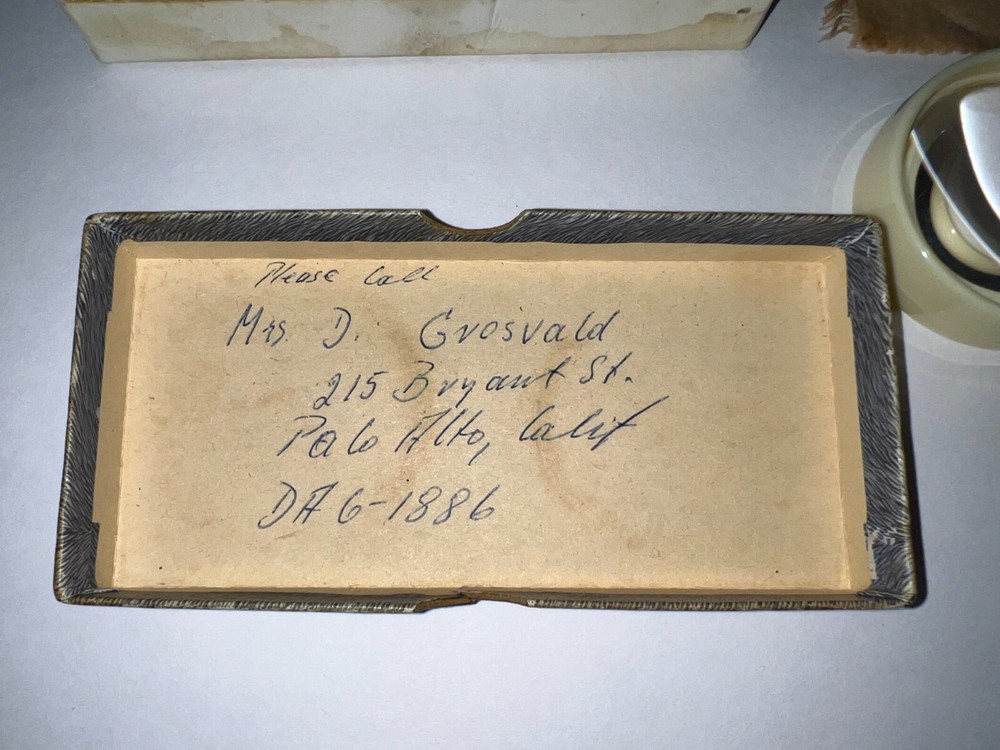 Please Call
Mrs. D. Grosvald
215 Bryant St.
Palo Alto, Calif
DA 6-1886